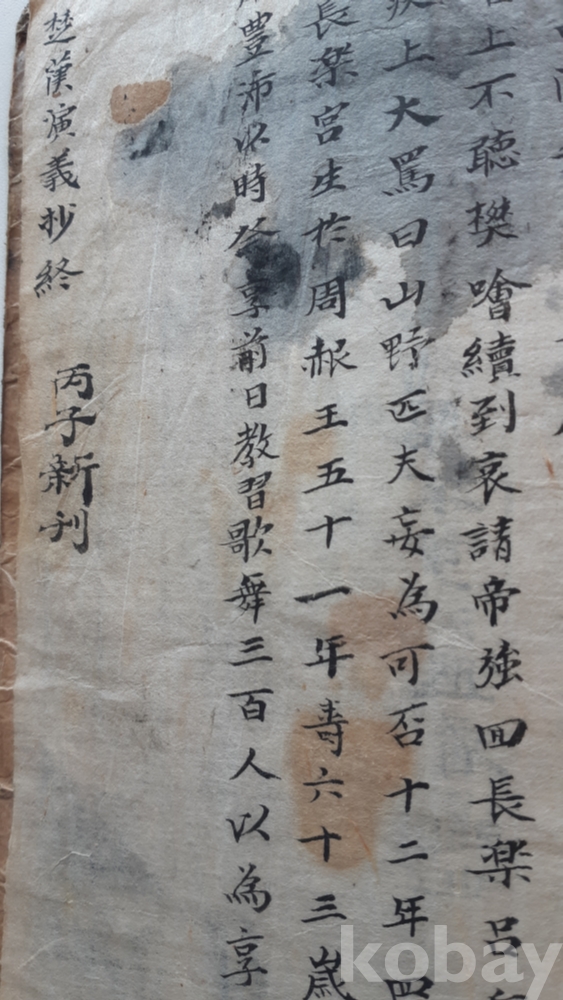 上不聽樊噲續到哀請帝強回長楽呂
上大罵曰山野匹夫妄為可否十二年四
長楽宮生於周赧王五十一年壽六十三歲
豊沛以時祭享前日教習歌舞三百人以為享
楚漢演義抄終 丙子新刊
kobay